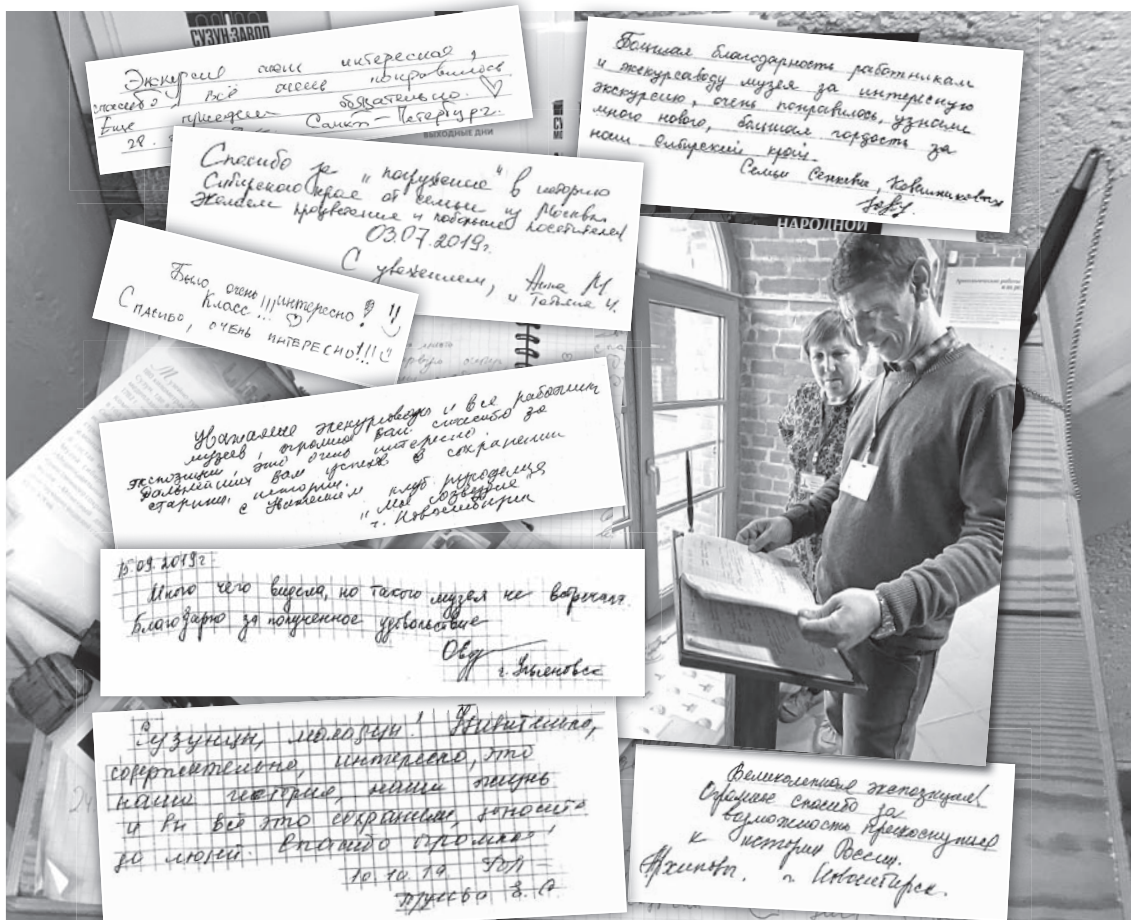 СУЗУН-ЗАВОД
Экскурсия очень интересная,
спасибо, всё очень понравилось
Еще приедем обязательно. ♡
Санкт-Петербург.
ВЫХОДНЫЕ ДНИ
Большая благодарность работникам
и экскурсоводу музея за интересную
экскурсию, очень понравилось, узнали
много нового, большая гордость за
наш Сибирский край.
Семьи
Спасибо за "погружение" в историю
Сибирского края от семьи из Москвы.
Желаем процветания и побольше посетителей
03.07.2019г.
С уважением, Анна М
и Татьяна И.
НАРОДНОЙ
Было очень интересно!
Класс!!! ♡
Спасибо, очень интересно!!!
Уважаемые экскурсоводы и все работники
музеев, огромное вам спасибо за
экспозиции, это очень интересно.
Дальнейших вам успехов в сохранении
старины, истории.
с Уважением клуб рукоделия
"Моё созвездие"
г. Новосибирск
15.09.2019г
Много чего видела, но такого музея не встречала.
Благодарю за полученное удовольствие
г. Ульяновск
Сузунцы, молодцы! Удивительно,
содержательно, интересно, это
наша история, наша жизнь
и Вы всё это сохранили, доносите
до людей. Спасибо огромное!
10.10.19
Великолепная экспозиция!
Огромное спасибо за
возможность прикоснуться
к истории России.
Архиповы. г. Новосибирск.